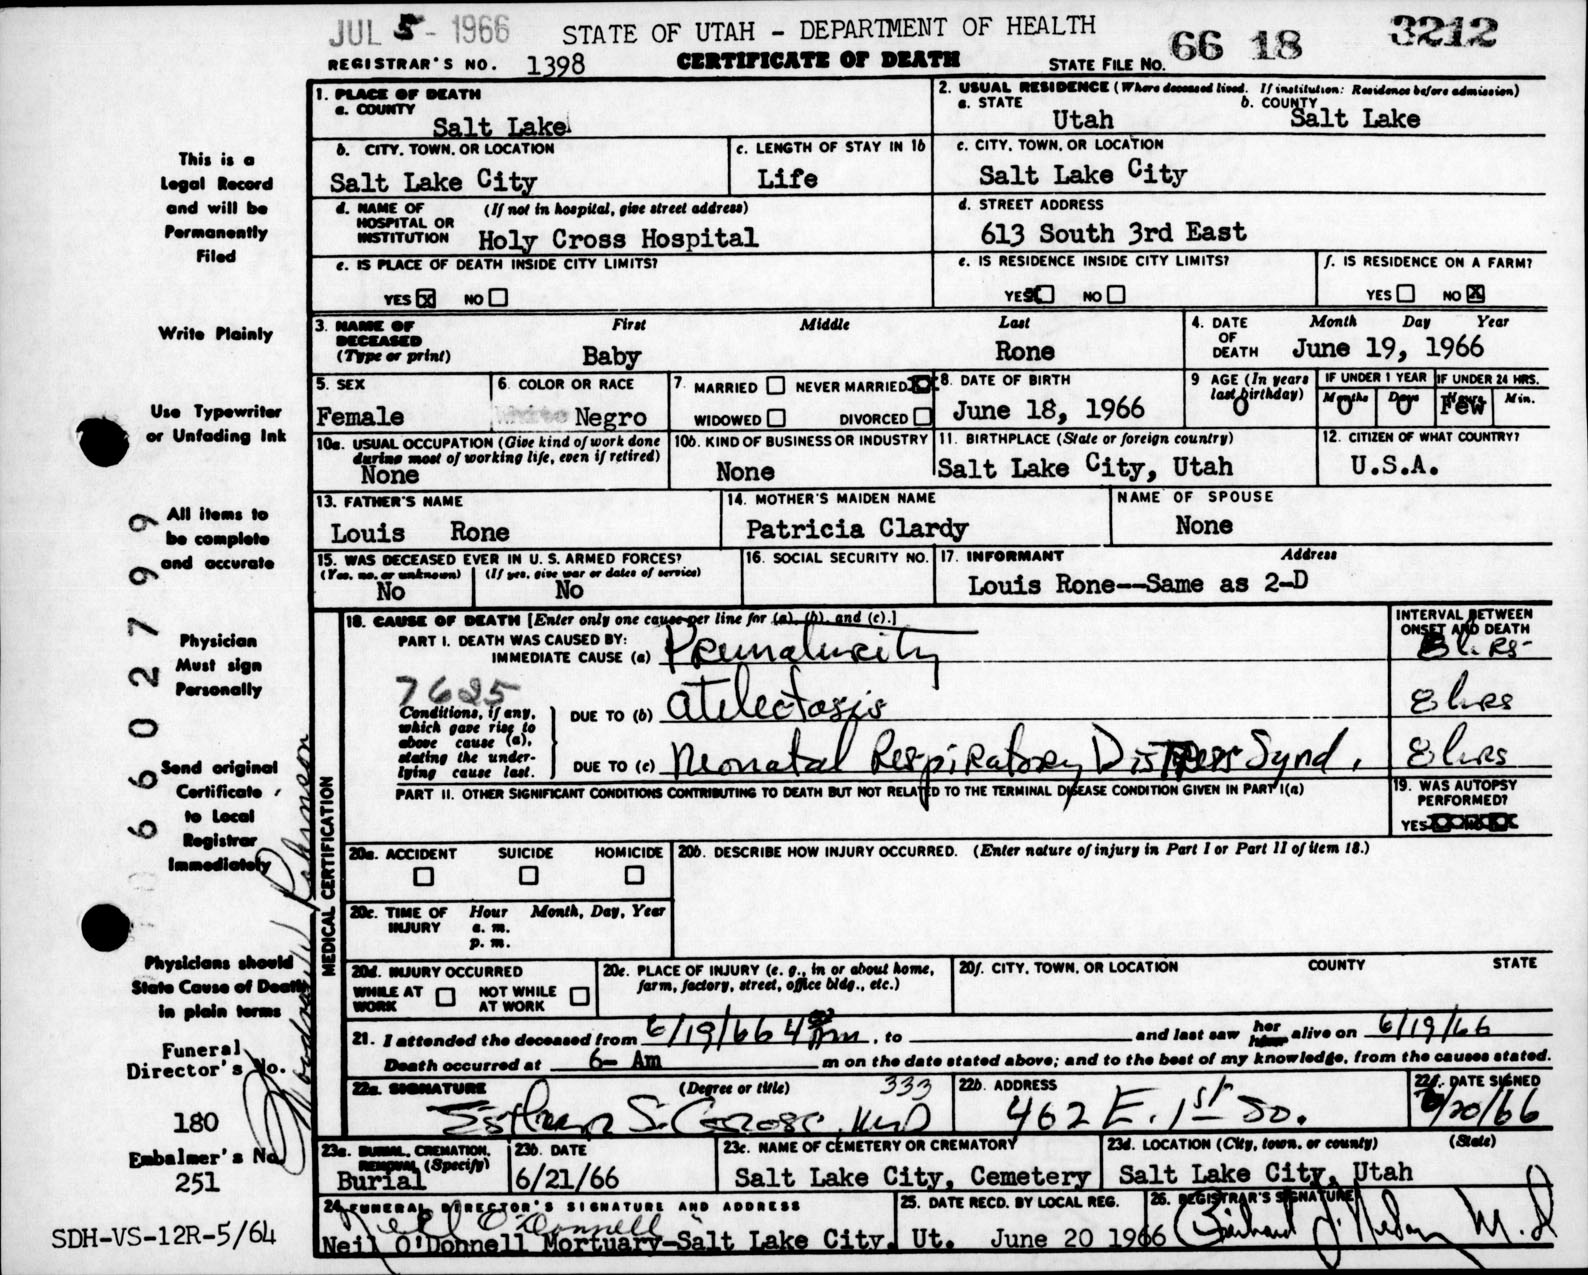 JUL 5 - 1966
STATE OF UTAH - DEPARTMENT OF HEALTH
66 18 3212
REGISTRAR'S NO. 1398
CERTIFICATE OF DEATH
STATE FILE NO.
1. PLACE OF DEATH
a. COUNTY
Salt Lake
2. USUAL RESIDENCE (Where deceased lived. If institution: Residence before admission)
a. STATE
Utah
b. COUNTY
Salt Lake
This is a
Legal Record
and will be
Permanently
Filed
b. CITY, TOWN, OR LOCATION
Salt Lake City
c. LENGTH OF STAY IN 1b
Life
c. CITY, TOWN, OR LOCATION
Salt Lake City
d. NAME OF HOSPITAL OR INSTITUTION
(If not in hospital, give street address)
Holy Cross Hospital
d. STREET ADDRESS
613 South 3rd East
e. IS PLACE OF DEATH INSIDE CITY LIMITS?
YES X NO
e. IS RESIDENCE INSIDE CITY LIMITS?
YES NO
f. IS RESIDENCE ON A FARM?
YES NO X
Write Plainly
3. NAME OF DECEASED
(Type or print)
First Middle Last
Baby Rone
4. DATE OF DEATH
Month Day Year
June 19, 1966
5. SEX
Female
6. COLOR OR RACE
White Negro
7. MARRIED NEVER MARRIED X
WIDOWED DIVORCED
8. DATE OF BIRTH
June 18, 1966
9 AGE (In years last birthday)
0
IF UNDER 1 YEAR
Months Days
0 0
IF UNDER 24 HRS.
Hours Min.
Few
Use Typewriter
or Unfading Ink
10a. USUAL OCCUPATION (Give kind of work done during most of working life, even if retired)
None
10b. KIND OF BUSINESS OR INDUSTRY
None
11. BIRTHPLACE (State or foreign country)
Salt Lake City, Utah
12. CITIZEN OF WHAT COUNTRY?
U.S.A.
13. FATHER'S NAME
Louis Rone
14. MOTHER'S MAIDEN NAME
Patricia Clardy
NAME OF SPOUSE
None
All items to
be complete
and accurate
15. WAS DECEASED EVER IN U. S. ARMED FORCES?
(Yes, no, or unknown) (If yes, give war or dates of service)
No No
16. SOCIAL SECURITY NO.
17. INFORMANT Address
Louis Rone--Same as 2-D
6602799
Physician
Must sign
Personally
MEDICAL CERTIFICATION
18. CAUSE OF DEATH [Enter only one cause per line for (a), (b), and (c).]
PART I. DEATH WAS CAUSED BY:
IMMEDIATE CAUSE (a) Prematurity
INTERVAL BETWEEN
ONSET AND DEATH
8 hrs
7625
Conditions, if any,
which gave rise to
above cause (a),
stating the under-
lying cause last.
DUE TO (b) atelectasis
8 hrs
DUE TO (c) Neonatal Respiratory Distress Synd.
8 hrs
PART II. OTHER SIGNIFICANT CONDITIONS CONTRIBUTING TO DEATH BUT NOT RELATED TO THE TERMINAL DISEASE CONDITION GIVEN IN PART I(a)
19. WAS AUTOPSY PERFORMED?
YES NO
Send original
Certificate
to Local
Registrar
Immediately
20a. ACCIDENT SUICIDE HOMICIDE
20b. DESCRIBE HOW INJURY OCCURRED. (Enter nature of injury in Part I or Part II of item 18.)
20c. TIME OF INJURY
Hour Month, Day, Year
a. m.
p. m.
Physicians should
State Cause of Death
in plain terms
20d. INJURY OCCURRED
WHILE AT WORK NOT WHILE AT WORK
20e. PLACE OF INJURY (e. g., in or about home, farm, factory, street, office bldg., etc.)
20f. CITY, TOWN, OR LOCATION COUNTY STATE
21. I attended the deceased from 6/19/66 , to and last saw her alive on 6/19/66
Death occurred at 6- Am m on the date stated above; and to the best of my knowledge, from the causes stated.
Funeral
Director's No.
180
22a. SIGNATURE (Degree or title) 333
22b. ADDRESS
462 E. 1st So.
22c. DATE SIGNED
6/20/66
Embalmer's No.
251
23a. BURIAL, CREMATION, REMOVAL (Specify)
Burial
23b. DATE
6/21/66
23c. NAME OF CEMETERY OR CREMATORY
Salt Lake City, Cemetery
23d. LOCATION (City, town, or county) (State)
Salt Lake City, Utah
24. FUNERAL DIRECTOR'S SIGNATURE AND ADDRESS
Neil O'Donnell
Neil O'Donnell Mortuary-Salt Lake City, Ut.
25. DATE RECD. BY LOCAL REG.
June 20 1966
26. REGISTRAR'S SIGNATURE
SDH-VS-12R-5/64